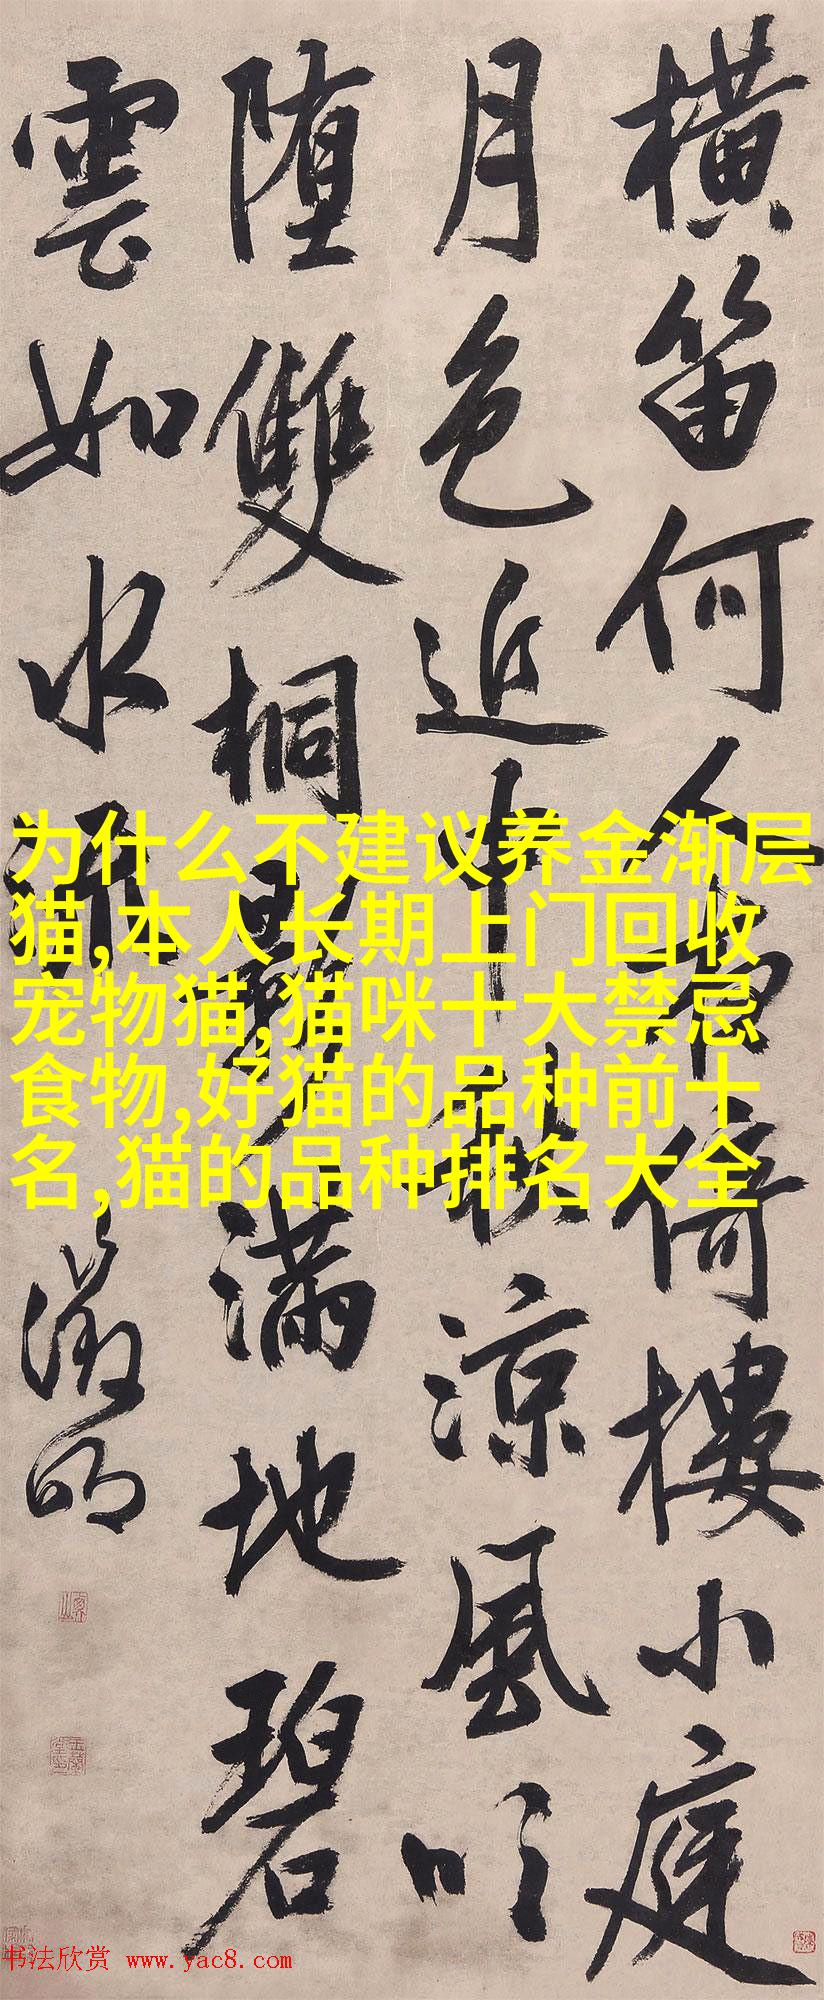 橫笛何人夜倚樓小庭
月色近中秋涼風吹
堕雙桐影滿地碧
雲如水流
徵明
为什么不建议养金渐层
猫,本人长期上门回收
宠物猫,猫咪十大禁忌
食物,好猫的品种前十
名,猫的品种排名大全
书法欣赏 www.yac8.com